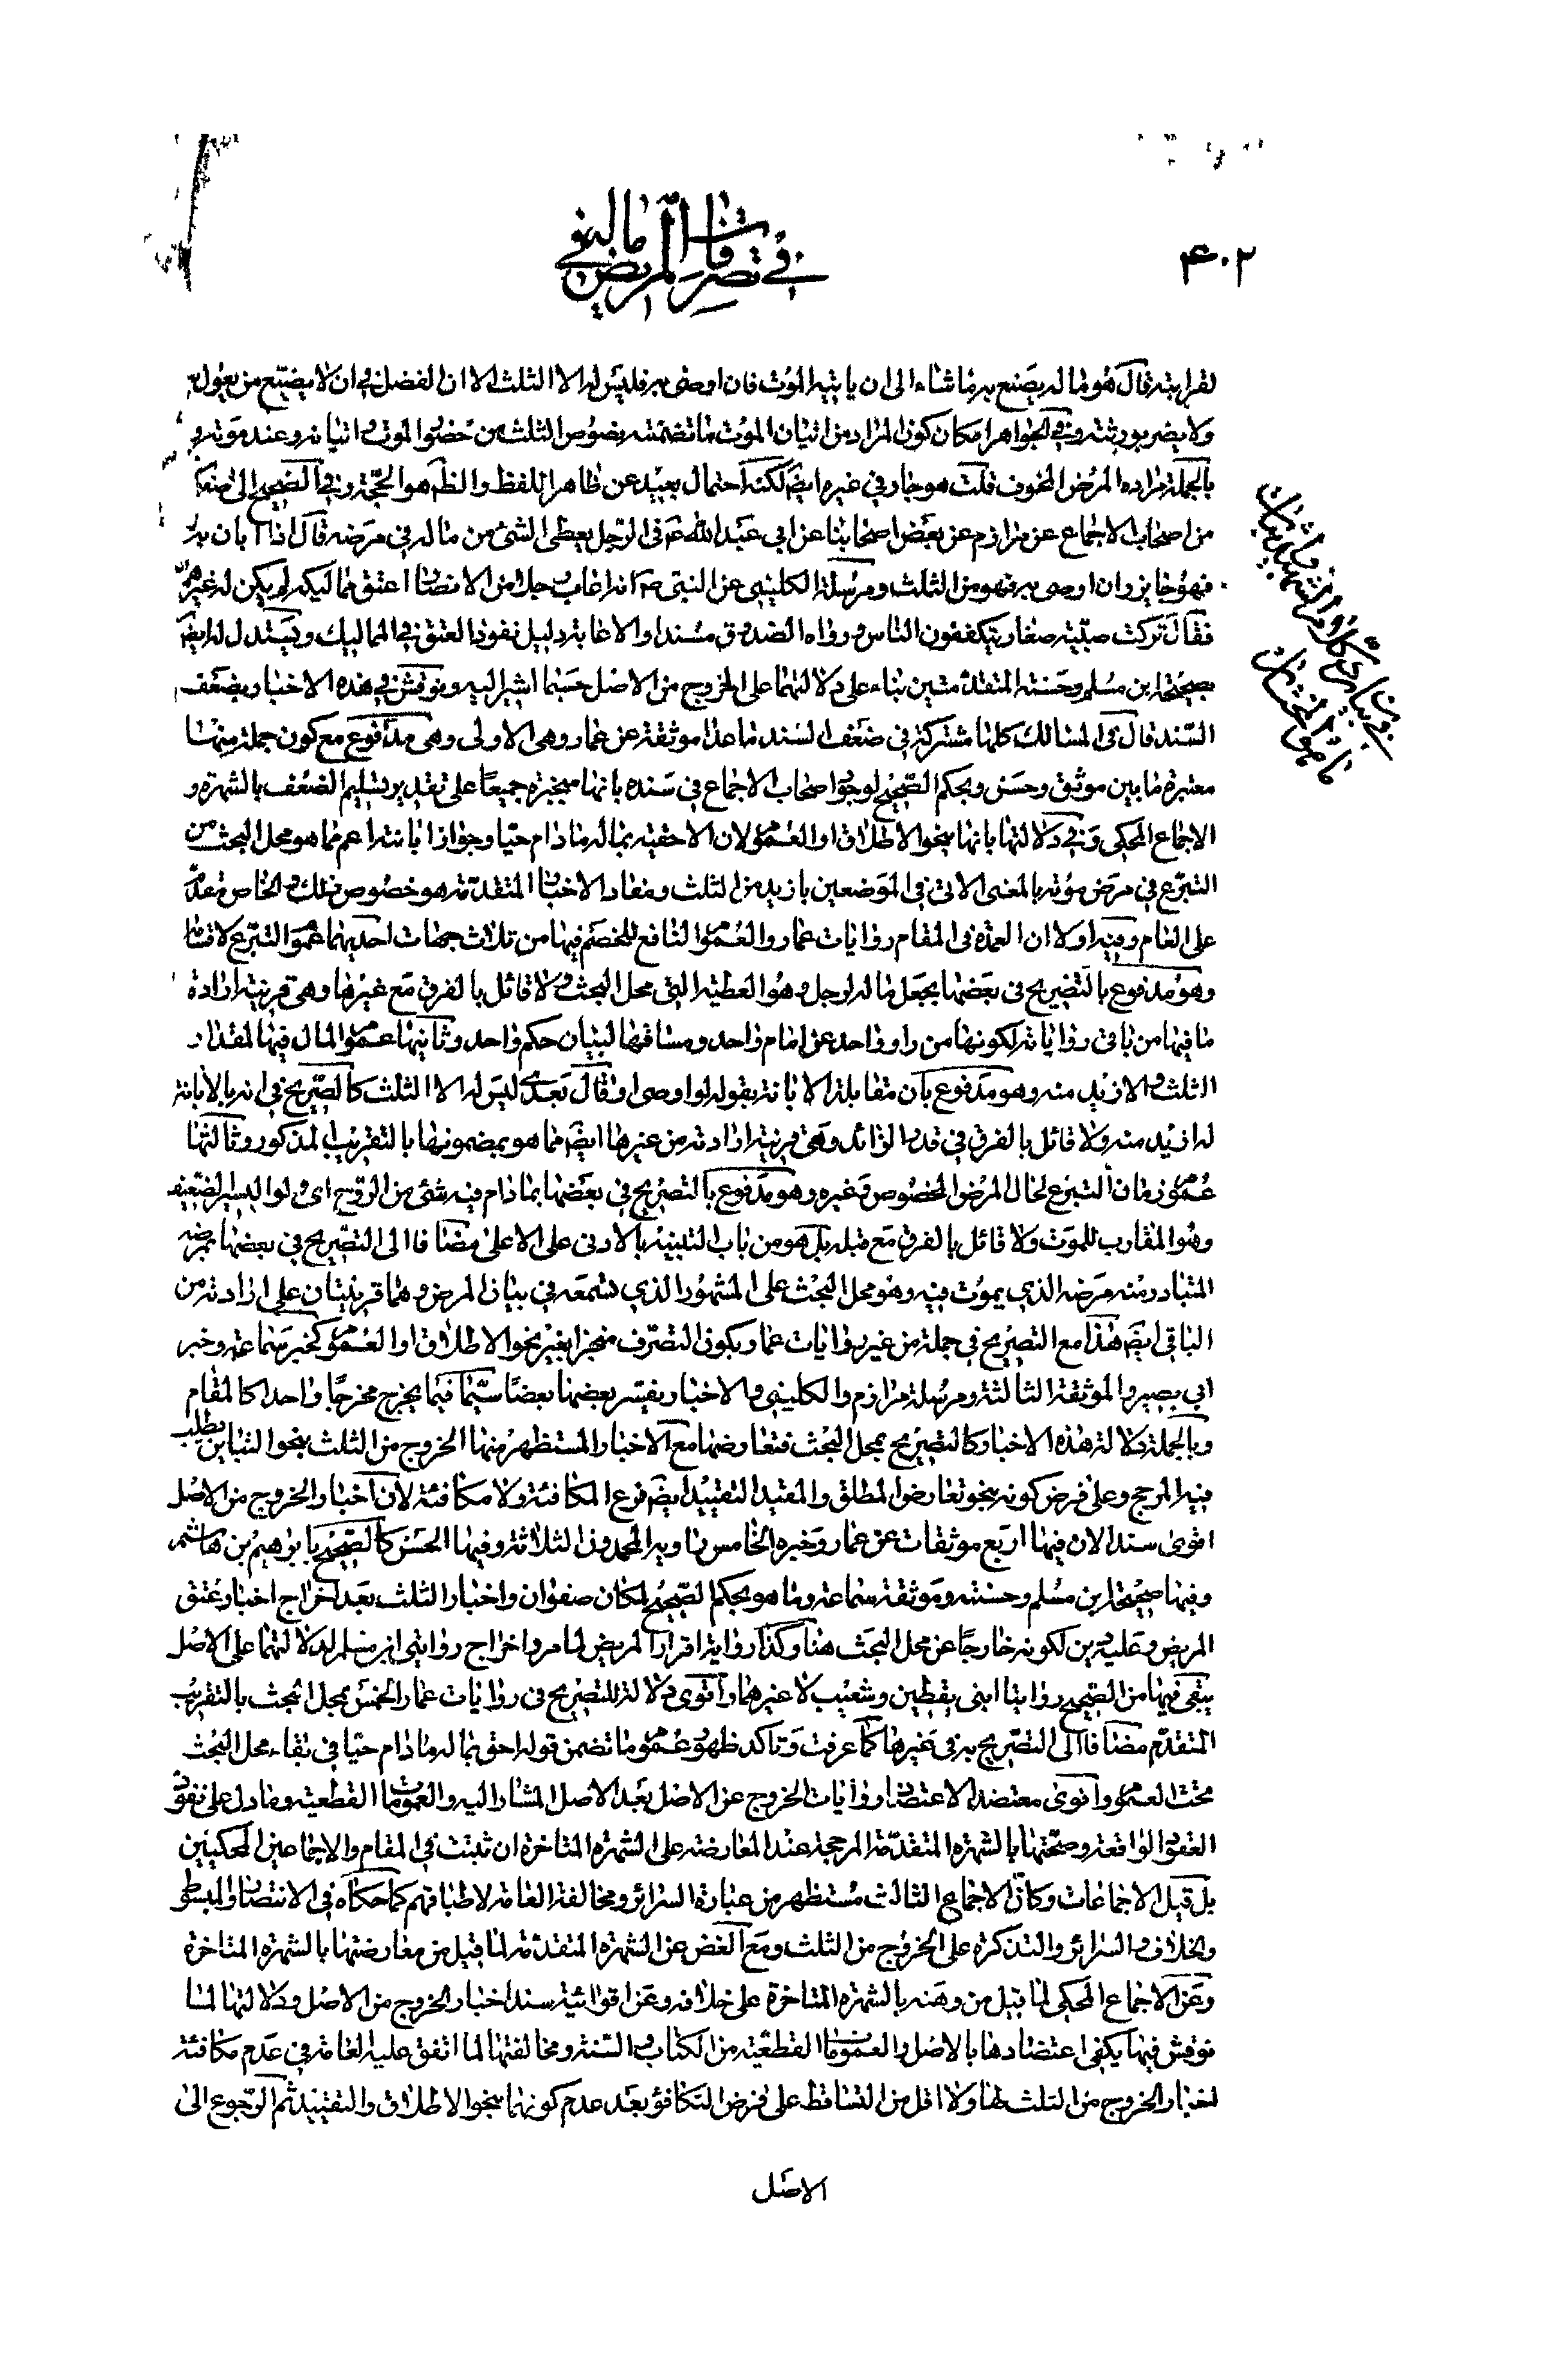 ۴۰۲
في تصرفات المريض المالية
لقرابته قال هو ماله يصنع به ما شاء الى ان ياتيه الموت فان اوصى به فليس له الا الثلث الا ان الفضل في ان لا يضيع من يعوله
ولا يضر بورثته وفي الجواهر امكان كون المراد من اتيان الموت ما تضمنته نصوص الثلث من حضور الموت و اتيانه وعند موته و
بالجملة مراده المرض المخوف قلت هو جار في غيره ايضا لكنه احتمال بعيد عن ظاهر اللفظ والظم هو الحجة وفي الصحيح الى صفوان
من اصحاب الاجماع عن مرازم عن بعض اصحابنا عن ابي عبد الله ع في الرجل يعطى الشئ من ماله في مرضه قال اذا ابان به
فهو جايز وان اوصى به فهو من الثلث ومرسلة الكليني عن النبي ص انه اعاب رجلا من الانصار اعتق مماليكه لم يكن له غيرهم
فقال تركت صبيته صغار يتكففون الناس ورواه الصدوق مسندا والاعابة دليل نفوذ العتق في المماليك ويستدل له ايضا
بصحيحة ابن مسلم وحسنته المتقدمتين بناء على دلالتهما على الخروج من الاصل حسبما اشير اليه ونوقش في هذه الاخبار بضعف
السند قال في المسالك كلها مشتركة في ضعف السند ما عدا موثقة عن عمار وهى الاولى وهى مدفوع مع كون جملة منها
معتبرة ما بين موثق وحسن وبحكم الصحيح لوجود اصحاب الاجماع في سنده بانها منجبرة جميعا على تقدير تسليم الضعف بالشهرة و
الاجماع المحكى وفي دلالتها بانها بنحو الاطلاق او العموم لان الاحقيه بماله مادام حيا وجواز ابانته اعم مما هو محل البحث من
التبرع في مرض موته بالمعنى الاتى في الموضعين بازيد من الثلث ومفاد الاخبار المتقدمة هو خصوص ذلك والخاص مقدم
على العام وفيه اولا ان العمدة في المقام روايات عمار والعموم النافع للخصم فيها من ثلاث جهات احديهما عموم التبرع لاقسامه
وهو مدفوع بالتصريح في بعضها بجعل ماله لرجل وهو العطية التي محل البحث ولا قائل بالفرق مع غيرها وهى قرينة ارادة
ما فيها من باقى رواياته لكونها من راو واحد عن امام واحد ومساقها لبيان حكم واحد وثانيها عموم المال فيها لمقدار
الثلث والازيد منه وهو مدفوع بان مقابلة الابانة بقوله لو اوصى او قال بعدى ليس له الا الثلث كالصريح في انه بالابانة
له ازيد منه ولا قائل بالفرق في قدر الزائد وهى قرينة ارادته من غيرها ايضا مما هو بمضمونها بالتقريب المذكور وثالثها
عموم زمان التبرع لحال المرض المخصوص وغيره وهو مدفوع بالتصريح في بعضها بمادام فيه شئ من الروح اى ولو اليسير الضعيف
وهو المقارب للموت ولا قائل بالفرق مع قبله بل هو من باب التنبيه بالادنى على الاعلى مضافا الى التصريح في بعضها بمرضه
المتبادر منه مرضه الذي يموت فيه وهو محل البحث على المشهور الذي تسمعه في بيان المرض و هما قرينتان على ارادته من
الباقى ايضا هذا مع التصريح في جملة من غير روايات عمار بكون التصرف منجزا بغير نحو الاطلاق او العموم كخبر سماعة وخبر
ابي بصير والموثقة الثالثة ومرسلة مرازم والكليني والاخبار يفسر بعضها بعضا سيما فيما يخرج مخرجا واحدا كالمقام
وبالجملة دلالة هذه الاخبار كالتصريح بمحل البحث فتعارضها مع الاخبار المستظهر منها الخروج من الثلث بنحو التباين يطلب
فيه المرجح وعلى فرض كونه بنحو تعارض المطلق والمقيد التقييد ايضا فرع المكافئة ولا مكافئة لان اخبار الخروج من الاصل
اقوى سندا لان فيها اربع موثقات عن عمار وخبره الخامس راويه المحمدون الثلاثة وفيها الحسن كالصحيح بابرهيم بن هاشم
وفيها صحيحة ابن مسلم وحسنته وموثقة سماعة وما هو بحكم الصحيح لمكان صفوان واخبار الثلث بعد اخراج اخبار عتق
المريض وعليه دين لكونه خارجا عن محل البحث هنا وكذا رواية اقرار المريض لما مر واخراج روايتي ابن مسلم لدلالتهما على الاصل
يبقى فيها من الصحيح روايتا ابنى يقطين وشعيب لا غيرهما واقوى دلالة للتصريح في روايات عمار الخمس بمحل البحث بالتقريب
المتقدم مضافا الى التصريح به في غيرها كما عرفت وتاكد ظهور عموم ما تضمن قوله احق بماله مادام حيا في بقاء محل البحث
تحت العموم واقوى معتضدا لاعتضاد روايات الخروج عن الاصل بعد الاصل المشار اليه والعمومات القطعية وما دل على نفوذ
العقود الواقعة وصحتها بالشهرة المتقدمة المرجحة عند المعارضة على الشهرة المتاخرة ان ثبتت في المقام والاجماعين المحكيين
بل قيل الاجماعات وكان الاجماع الثالث مستظهر من عبارة السرائر ومخالفة العامة لاطباقهم كما حكاه في الانتصار والمبسوط
والخلاف والسرائر والتذكرة على الخروج من الثلث ومع الغض عن الشهرة المتقدمة لما قيل من معارضتها بالشهرة المتاخرة
وعن الاجماع المحكى لما قيل من وهنه بالشهرة المتاخرة على خلافه وعن اقوائية سند اخبار الخروج من الاصل ودلالتها لما
نوقش فيها يكفى اعتضادها بالاصل والعمومات القطعية من الكتاب والسنة ومخالفتها لما اتفق عليه العامة في عدم مكافئة
اخبار الخروج من الثلث لها ولا اقل من التساقط على فرض التكافؤ بعد عدم كونهما بنحو الاطلاق والتقييد ثم الرجوع الى
الاصل